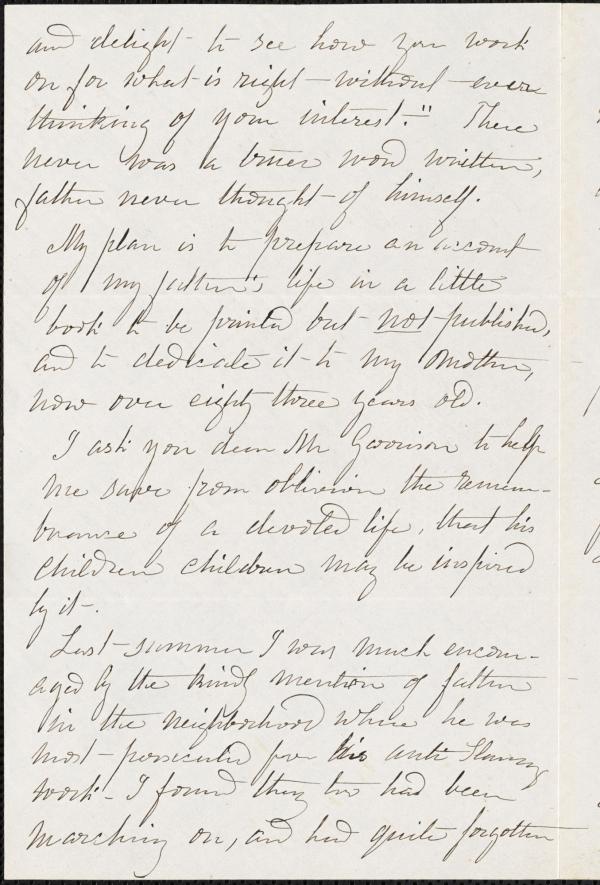 and delight - to see how you work
on for what is right - without ever
thinking of your interest." There
never was a truer word written,
father never thought of himself.
My plan is to prepare an account
of my father's life in a little
book to be printed but not published,
and to dedicate it to my Mother,
now over eighty three years old.
I ask you dear Mr Garrison to help
me save from oblivion the remem-
brance of a devoted life, that his
children children may be inspired
by it -
Last summer I was much encour-
aged by the kindly mention of father
in the neighborhood where he was
most persecuted for his anti Slavery
work - I found they too had been
marching on, and had quite forgotten